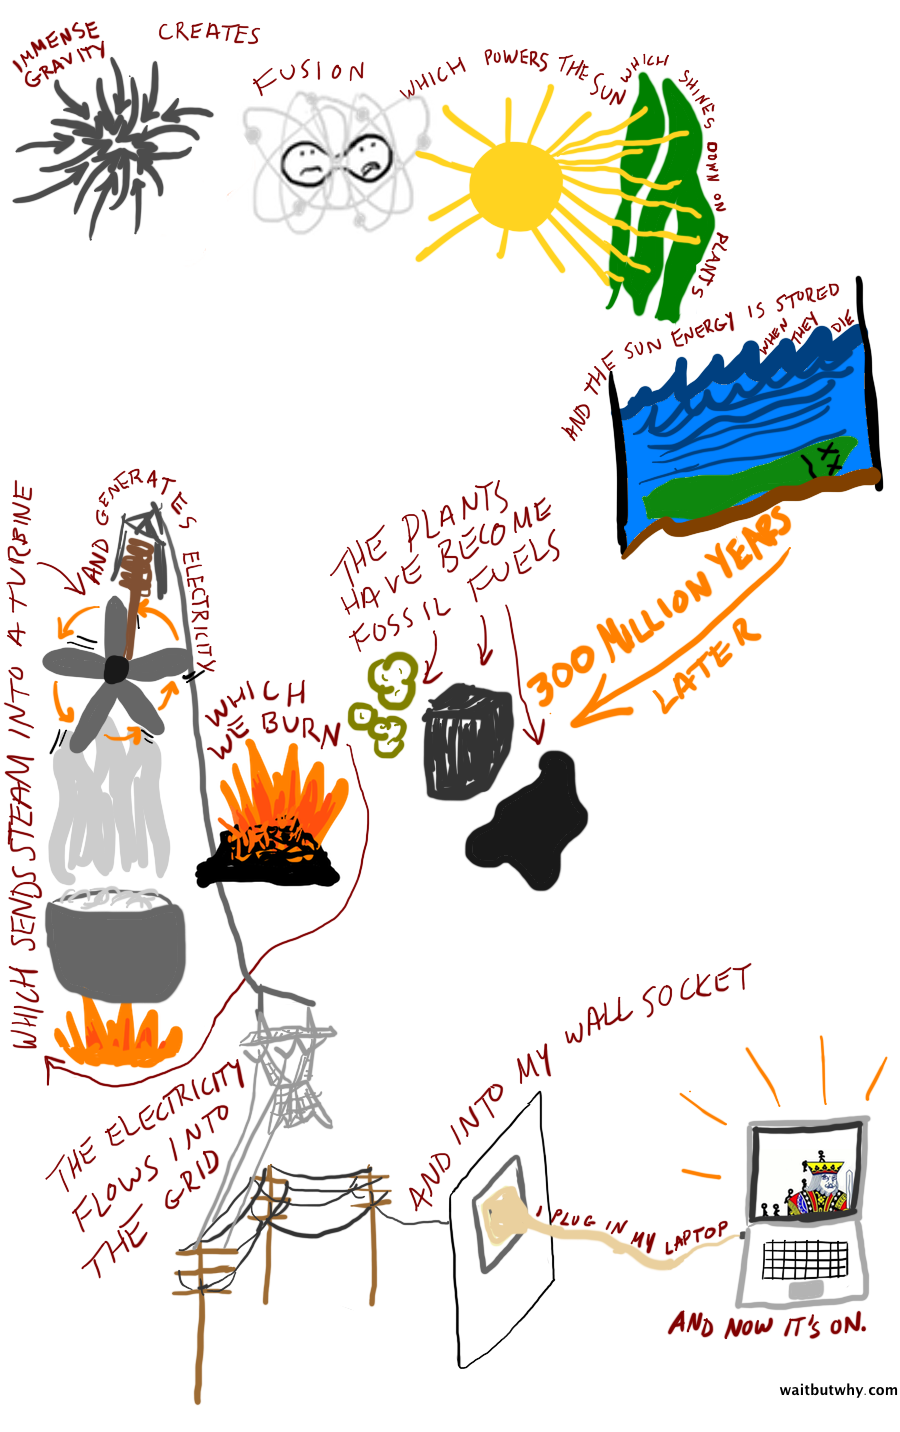 IMMENSE
GRAVITY
CREATES
FUSION
WHICH POWERS THE SUN
WHICH SHINES DOWN ON PLANTS
AND THE SUN ENERGY IS STORED
WHEN
THEY
DIE
300 MILLION YEARS
LATER
THE PLANTS
HAVE BECOME
FOSSIL FUELS
WHICH
WE BURN
WHICH SENDS STEAM INTO A TURBINE
AND GENERATES ELECTRICITY
THE ELECTRICITY
FLOWS INTO
THE GRID
AND INTO MY WALL SOCKET
I PLUG IN MY LAPTOP
AND NOW IT'S ON.
waitbutwhy.com